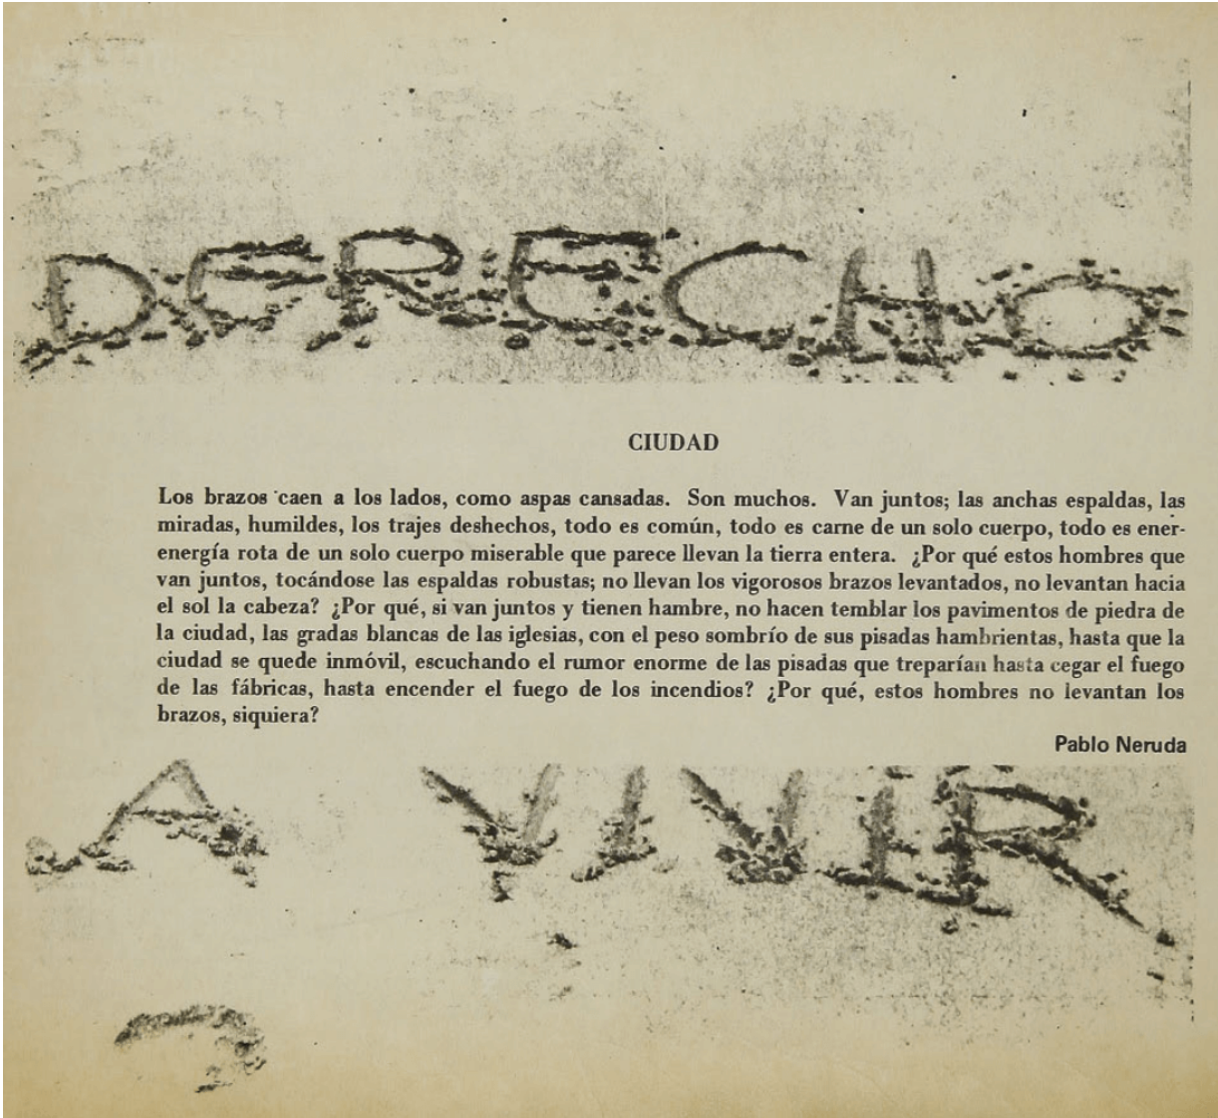 DERECHO
CIUDAD
Los brazos caen a los lados, como aspas cansadas. Son muchos. Van juntos; las anchas espaldas, las
miradas, humildes, los trajes deshechos, todo es común, todo es carne de un solo cuerpo, todo es ener-
energía rota de un solo cuerpo miserable que parece llevan la tierra entera. ¿Por qué estos hombres que
van juntos, tocándose las espaldas robustas; no llevan los vigorosos brazos levantados, no levantan hacia
el sol la cabeza? ¿Por qué, si van juntos y tienen hambre, no hacen temblar los pavimentos de piedra de
la ciudad, las gradas blancas de las iglesias, con el peso sombrío de sus pisadas hambrientas, hasta que la
ciudad se quede inmóvil, escuchando el rumor enorme de las pisadas que treparían hasta cegar el fuego
de las fábricas, hasta encender el fuego de los incendios? ¿Por qué, estos hombres no levantan los
brazos, siquiera?
Pablo Neruda
A VIVIR